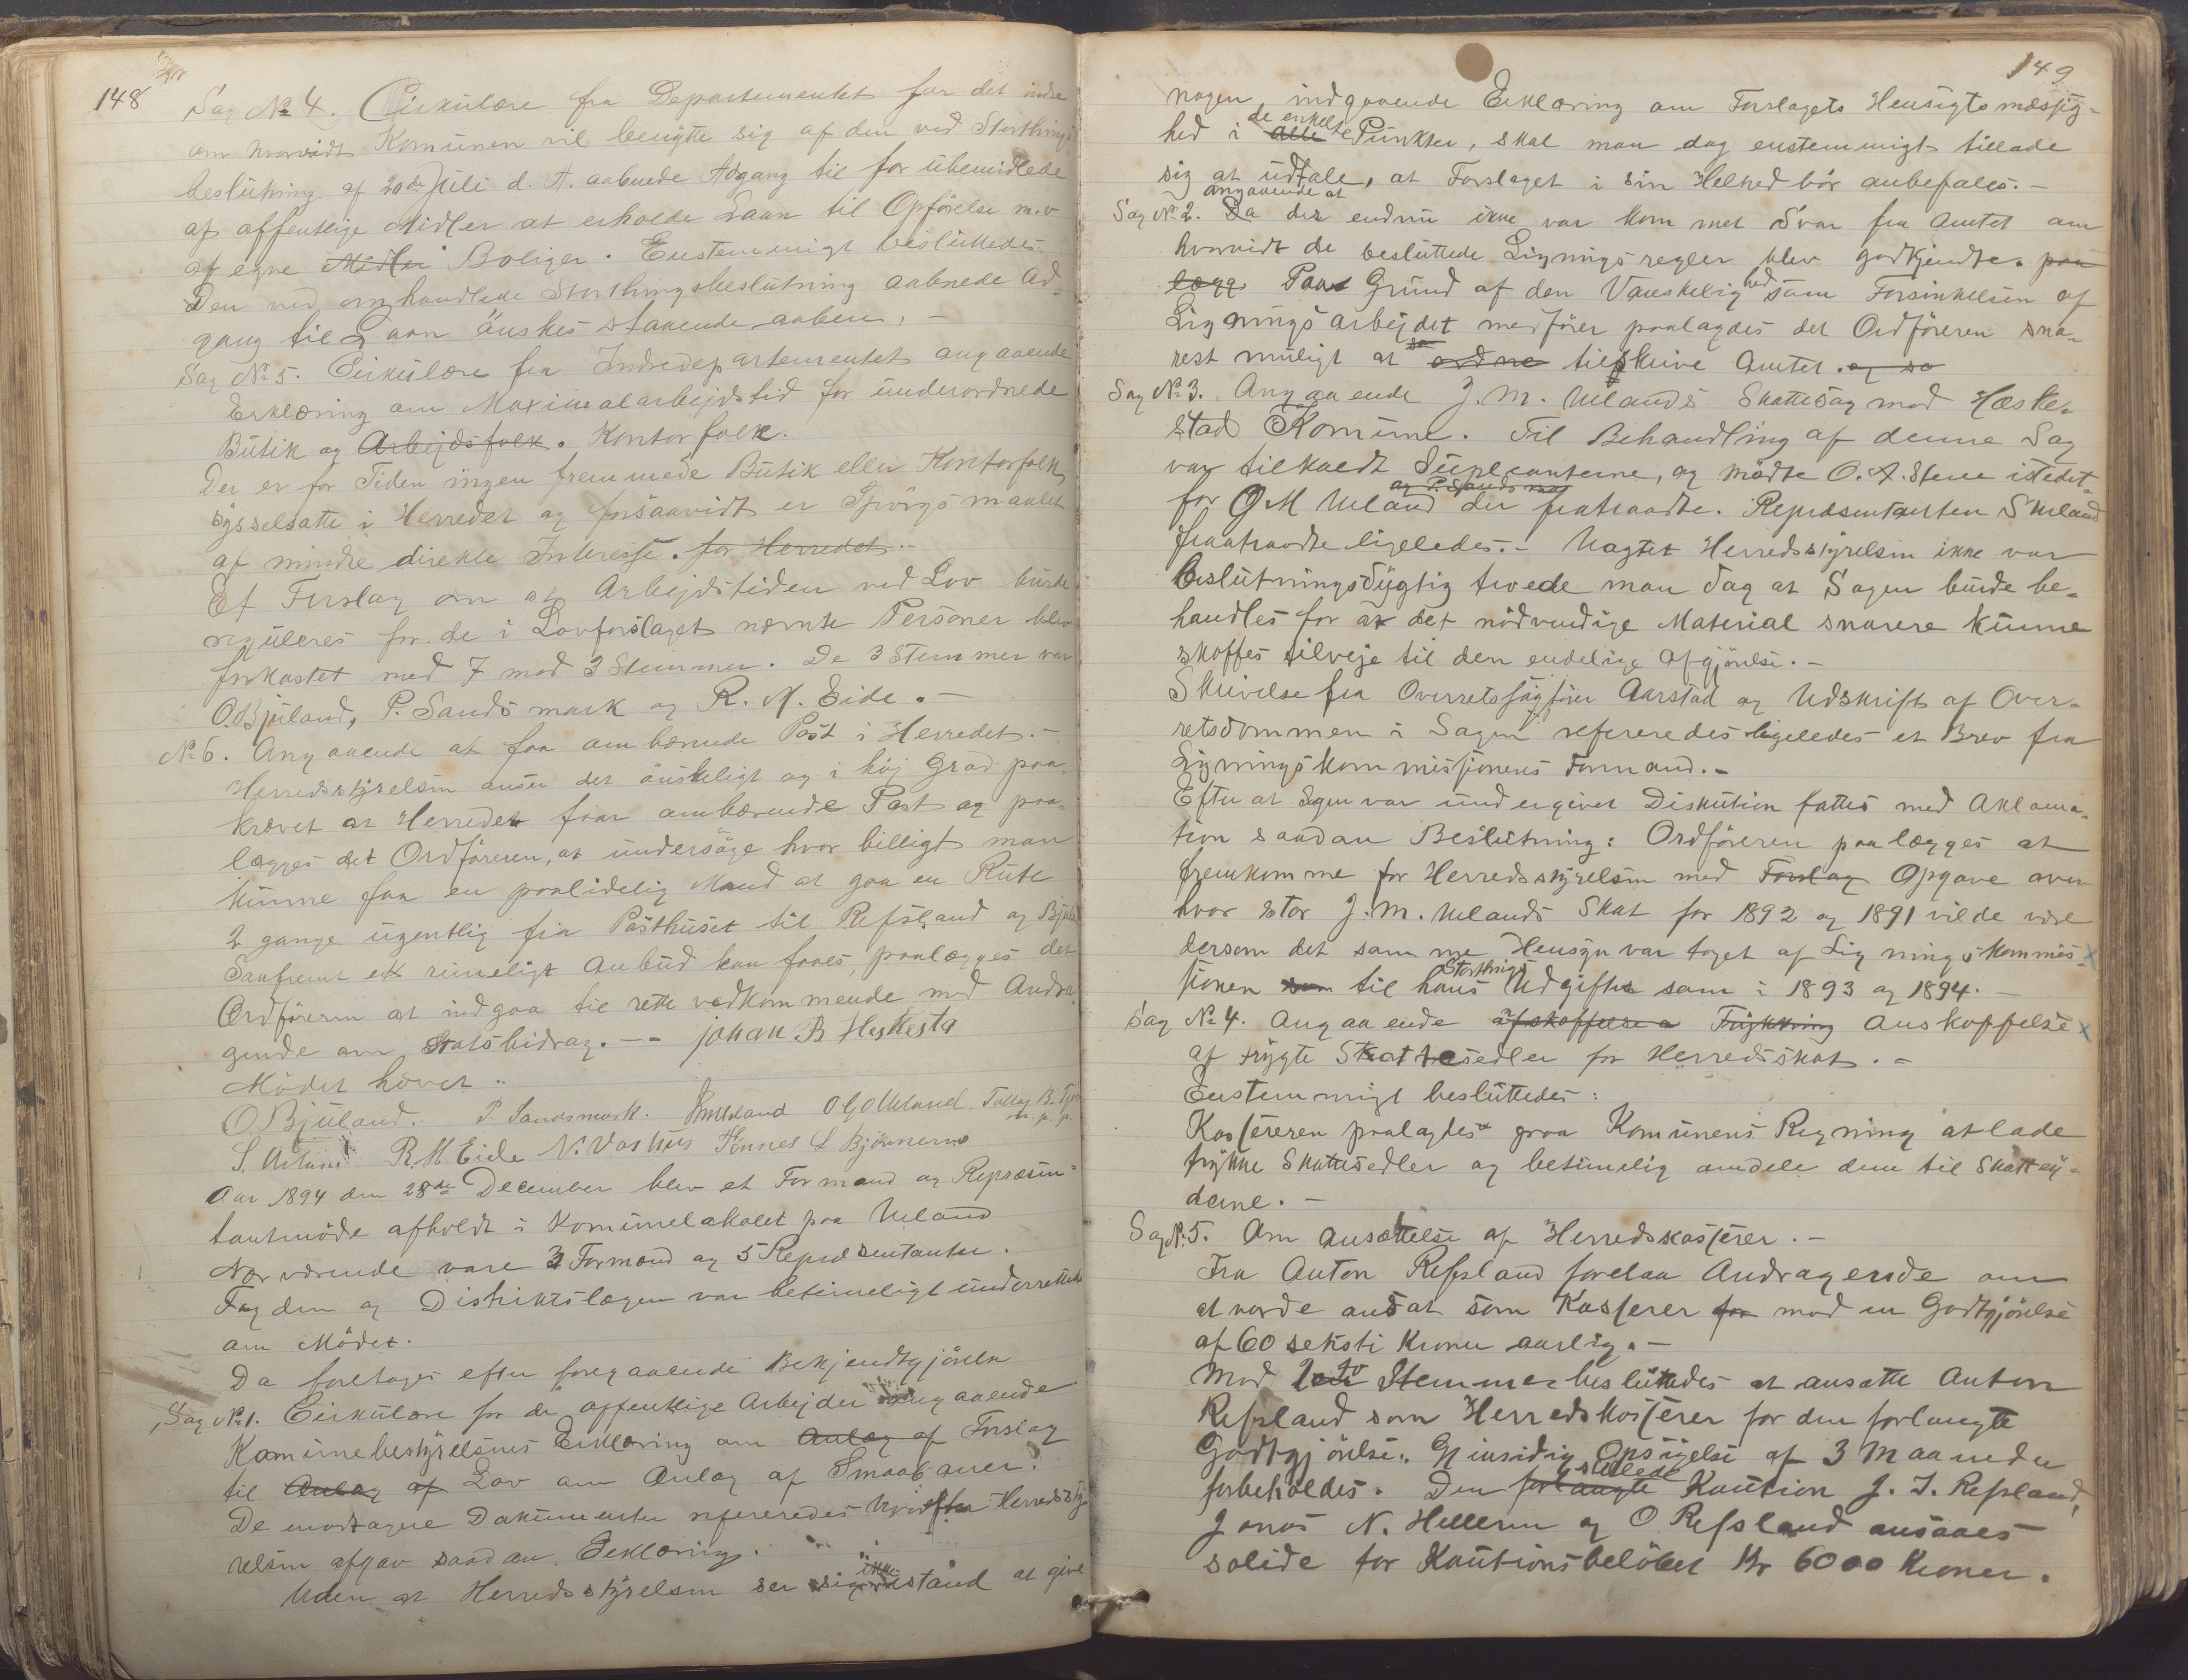 148
Sag No 4. Cirkulære fra Departementet for det indre
om hvorvidt Komunen vil benytte sig af den ved Storthings
beslutning af 20de Juli d. A. aabnede Adgang til for ubemidlede
af offentlige Midler at erholde Laan til Opförelse m.v
af egne Midler Boliger. Enstemmigt besluttedes
Den ved omhandlede Storthingsbeslutning aabnede Ad-
gang til Laan önskes staaende aaben. -
Sag No 5. Cirkulære fra Indredepartementet angaaende
Erklæring om Maximalarbejdstid for underordnede
Butik og Arbejdsfolk. Kontorfolk.
Der er for Tiden ingen fremmede Butik eller Kontorfolk
sysselsatte i Herredet og forsaavidt er Spörgsmaalet
af mindre direkte Interesse. for Herredet. -
Et Forslag om at Arbejdstiden ved Lov burde
reguleres for de i Lovforslaget nævnte Personer blev
forkastet med 7 mod 3 Stemmer. De 3 Stemmer var
O. Bjuland, P. Sandsmark og R. M. Eide. -
No 6. Angaaende at faa ombærende Post i Herredet. -
Herredsstyrelsen anser det önskeligt og i höj Grad paa-
krævet at Herredet faar ombærende Post og paa-
lægges det Ordföreren, at undersöge hvor billigt man
kunne faa en paalidelig Mand at gaa en Rute
2 gange ugentlig fra Posthuset til Refsland og
Saafremt et rimeligt Anbud kan faaes, paalægges det
Ordföreren at indgaa til rette vedkommende med Andra-
gende om Statsbidrag. -- Johan B Heskestad
Mödet hævet..
O Bjuland. P. Sandsmark. O G Ueland. B.
m. p. p.
R. M Eide N. Vashus Tönnes L Bjönnemo
Aar 1894 den 28de December blev et Formand og Repræsen-
tantmöde afholdt i Komunelokalet paa Ueland
Nærværende vare 3 Formænd og 5 Repræsentanter.
Fogden og Distriktslægen var betimeligt underrettede
om Mödet.
Da foretoges efter foregaaende Bekjendtgjörelse
Sag No 1. Cirkulære for de offentlige Arbejder angaaende
Komunebestyrelsens Erklæring om Anlæg af Forslag
til Anlæg af Lov om Anlæg af Smaabaner.
De modtagne Dokumenter refereredes hvorefter Herredssty-
relsen afgav saadan Erklæring.
ikke
Uden at Herredsstyrelsen ser sig istand at give
149
nogen indgaaende Erklæring om Forslagets Hensigtsmæssig-
de enkelte
hed i alle Punkter, skal man dog enstemmigt tillade
sig at udtale, at Forslaget i sin Helhed bör anbefales. -
angaaende at
Sag No 2. Da der endnu ikke var kom met Svar fra Amtet om
hvorvidt de besluttede Ligningsregler blev godkjendte. paa
lægg Paa Grund af den Vanskelighed som Forsinkelsen af
Ligningsarbejdet medförer paalagdes det Ordföreren sna-
rest muligt at ordne tilskrive Amtet. og sa
Sag No 3. Angaaende J. M. Uelands Skattesag mod Heske-
stad Komune. Til Behandling af denne Sag
var tilkaldt Suplianterne, og mödte O. A. Stene istedet-
og P. Sandsmark
for O M Ueland der fratraadte. Repræsentanten S Ueland
fratraadte ligeledes. - Uagtet Herredsstyrelsen ikke var
beslutningsdygtig troede man dog at Sagen burde be-
handles for at det nödvendige Material snarere kunne
skaffes tilveje til den endelige Afgjörelse. -
Skrivelse fra Overretssagförer Aarstad og Udskrift af Over-
retsdommen i Sagen refereredes ligeledes et Brev fra
Ligningskommissionens Formand. -
Efter at Sagen var undergivet Diskution fattes med Aklama-
tion saadan Beslutning: Ordföreren paalægges at
fremkomme for Herredsstyrelsen med Forslag Opgave over
hvor stor J. M. Uelands Skat for 1892 og 1891 vilde være
dersom det samme Hensyn var taget af Ligningskommis-
Storthings
sionen som til hans Udgifter som i 1893 og 1894. -
Sag No 4. Angaaende afskaffelse a Trykning Anskaffelse
af trygte Skattesedler for Herredsskat. -
Enstemmigt besluttedes:
Kassereren paalagdes paa Komunens Regning at lade
trykke Skattesedler og betimelig omdele dem til Skattey-
derne. -
Sag No 5. Om Ansættelse af Herredskasserer. -
Fra Anton Refsland forelaa Andragende om
at vorde ansat som Kasserer for mod en Godtgjörelse
af 60 seksti Kroner aarlig. -
Mod 2 to Stemmer besluttedes at ansætte Anton
Refsland som Herredskasserer for den forlangte
Godtgjörelse. Gjensidig Opsigelse af 3 Maaneder
stillede
forbeholdes. Den forlangte Kaution J. T. Refsland,
Jonas N. Helleren og O Refsland ansaaes
solide for Kautionsbelöbet Kr 6000 Kroner.